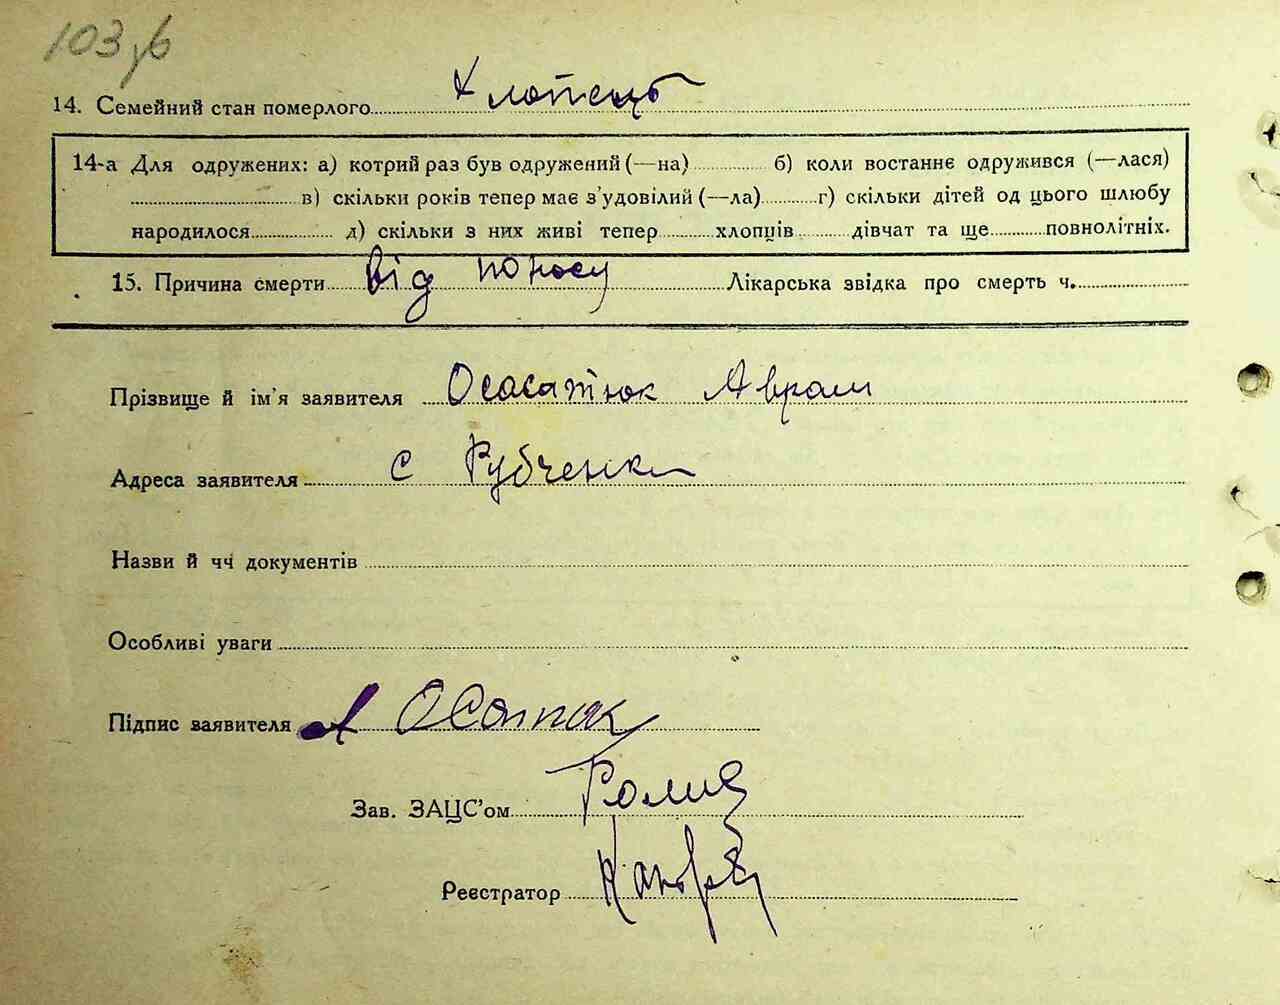 103 зв
14. Семейний стан померлого Хлопець
14-а Для одружених: а) котрий раз був одружений (—на) б) коли востаннє одружився (—лася)
в) скільки років тепер має з'удовілий (—ла) г) скільки дітей од цього шлюбу
народилося д) скільки з них живі тепер хлопців дівчат та ще повнолітніх.
15. Причина смерти від поносу Лікарська звідка про смерть ч.
Прізвище й ім'я заявителя Аврам
Адреса заявителя с Рубченки
Назви й чч документів
Особливі уваги
Підпис заявителя А Осатюк
Зав. ЗАЦС'ом
Реєстратор